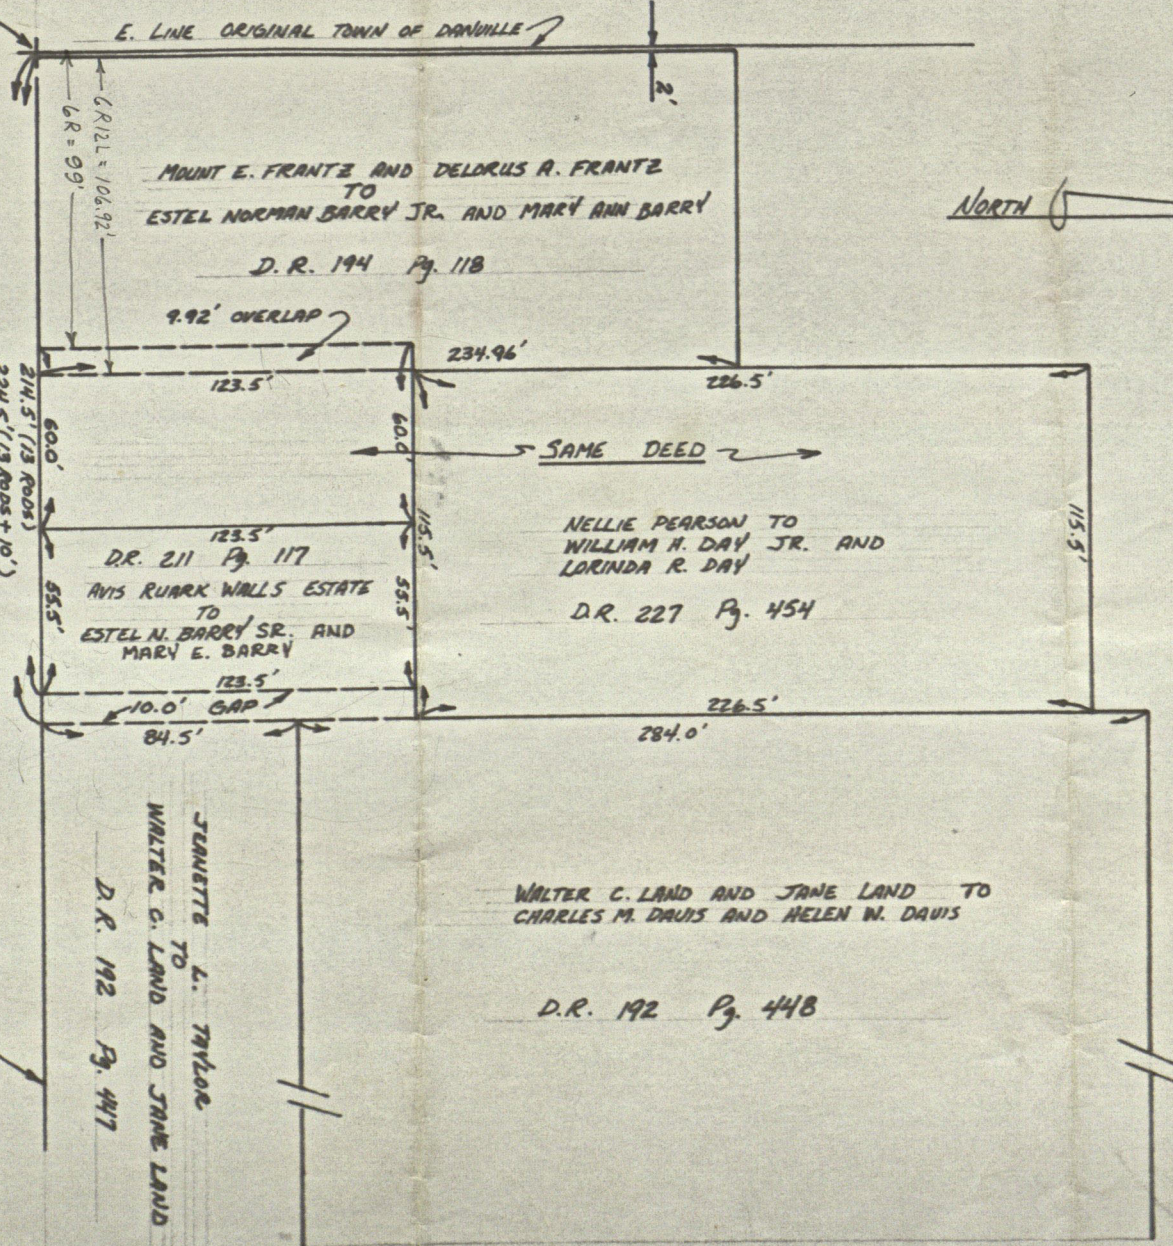 E. LINE ORIGINAL TOWN OF DANVILLE
2'
6R12L = 106.92'
6R = 99'
MOUNT E. FRANTZ AND DELORUS A. FRANTZ
TO
ESTEL NORMAN BARRY JR. AND MARY ANN BARRY
D.R. 194 Pg. 118
NORTH
9.92' OVERLAP
234.96'
123.5'
226.5'
214.5' (13 RODS)
224.5' (13 RODS + 10')
60.0'
60.0'
SAME DEED
115.5'
115.5'
123.5'
D.R. 211 Pg. 117
AVIS RUARK WALLS ESTATE
TO
ESTEL N. BARRY SR. AND
MARY E. BARRY
55.5'
55.5'
NELLIE PEARSON TO
WILLIAM H. DAY JR. AND
LORINDA R. DAY
D.R. 227 Pg. 454
123.5'
10.0' GAP
84.5'
226.5'
284.0'
JEANETTE L. TAYLOR
TO
WALTER C. LAND AND JANE LAND
D.R. 192 Pg. 447
WALTER C. LAND AND JANE LAND TO
CHARLES M. DAVIS AND HELEN W. DAVIS
D.R. 192 Pg. 448